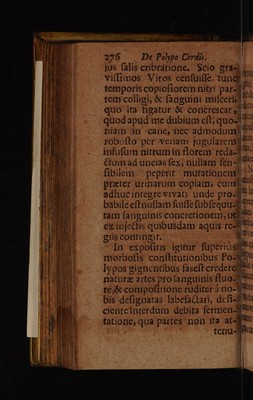 276 De Polypo Cordis.
jus salis cribratione. Scio gra-
vissimos Viros censuisse, tunc
temporis copiosiorem nitri par-
tem colligi, & sanguini misceri,
quo ita figatur & concrescat,
quod apud me dubium est, quo-
niam in cane, nec admodum
robusto per venam jugularem
infusum nitrum in florem reda-
ctum ad uncias sex, nullam sen-
sibilem peperit mutationem
præter urinarum copiam, cum
adhuc integre vivat: unde pro-
babile est nullam fuisse subsequu-
tam sanguinis concretionem, ut
ex injectis quibusdam aquis re-
giis contingit.
In expositis igitur superius
morbosis constitutionibus Po-
lypos gignentibus fas est credere
naturæ artes pro sanguinis fluo-
re, & compositione ruditer à no-
bis designatas labefactari, defi-
ciente interdum debita fermen-
tatione, qua partes non ita at-
tenu-